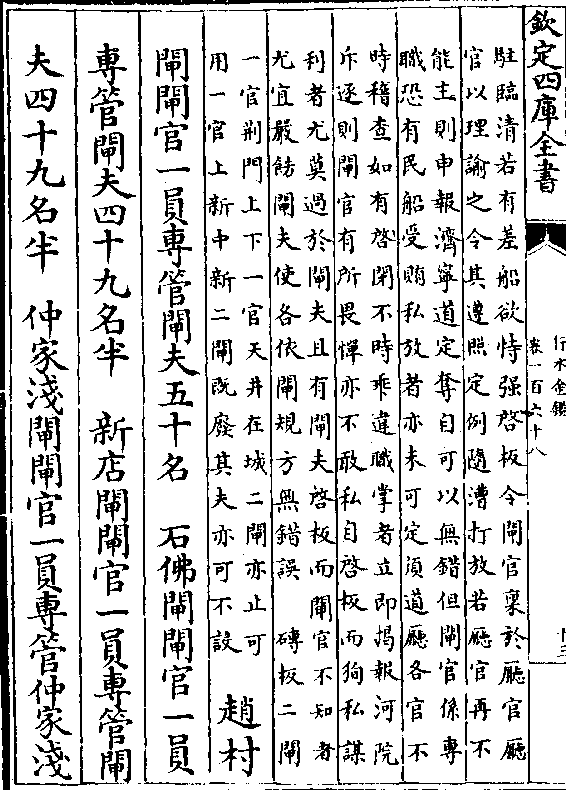 欽定四庫全書
行水金鑑
卷一百六十八
駐臨清若有差船欲恃强啓板令閘官稟於廳官廳
官以理諭之令其遵照定例隨漕打放若廳官再不
能主則申報濟寧道定奪自可以無錯但閘官係專
職恐有民船受賄私放者亦未可定須道廳各官不
時稽查如有啓閉不時乖違職掌者立即揭報河院
斥逐則閘官有所畏憚亦不敢私自啓板而狥私謀
利者尤莫過於閘夫且有閘夫啓板而閘官不知者
尤宜嚴飭閘夫使各依閘規方無錯誤　磚板二閘
一官荆門上下一官天井在城二閘亦止可
用一官上新中新二閘既廢其夫亦可不設
趙村
閘閘官一員專管閘夫五十名　石佛閘閘官一員
專管閘夫四十九名半　新店閘閘官一員專管閘
夫四十九名半　仲家淺閘閘官一員專管仲家淺